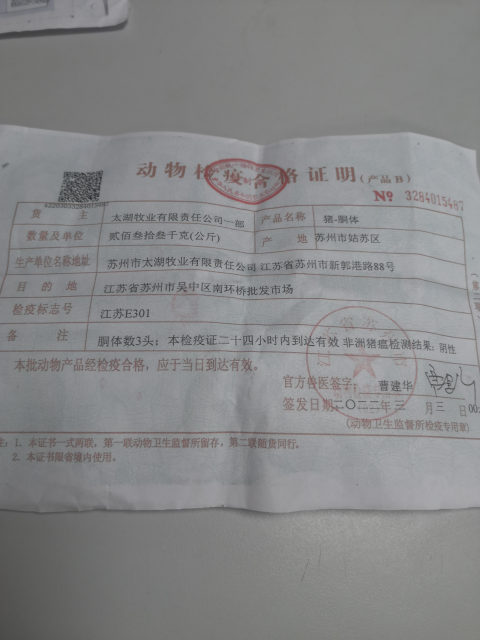 动物检疫合格证明(产品B)
№ 3284015487
货主 太湖牧业有限责任公司一部 产品名称 猪-胴体
数量及单位 贰佰叁拾叁千克(公斤) 产地 苏州市姑苏区
生产单位名称地址 苏州市太湖牧业有限责任公司 江苏省苏州市新郭港路88号
目的地 江苏省苏州市吴中区南环桥批发市场
检疫标志号 江苏E301
备注 胴体数3头; 本检疫证二十四小时内到达有效 非洲猪瘟检测结果: 阴性
本批动物产品经检疫合格，应于当日到达有效。
官方兽医签字: 曹建华
签发日期:二〇二二年三月三日00:
(动物卫生监督所检疫专用章)
注: 1. 本证书一式两联，第一联动物卫生监督所留存，第二联随货同行。
2. 本证书限省境内使用。